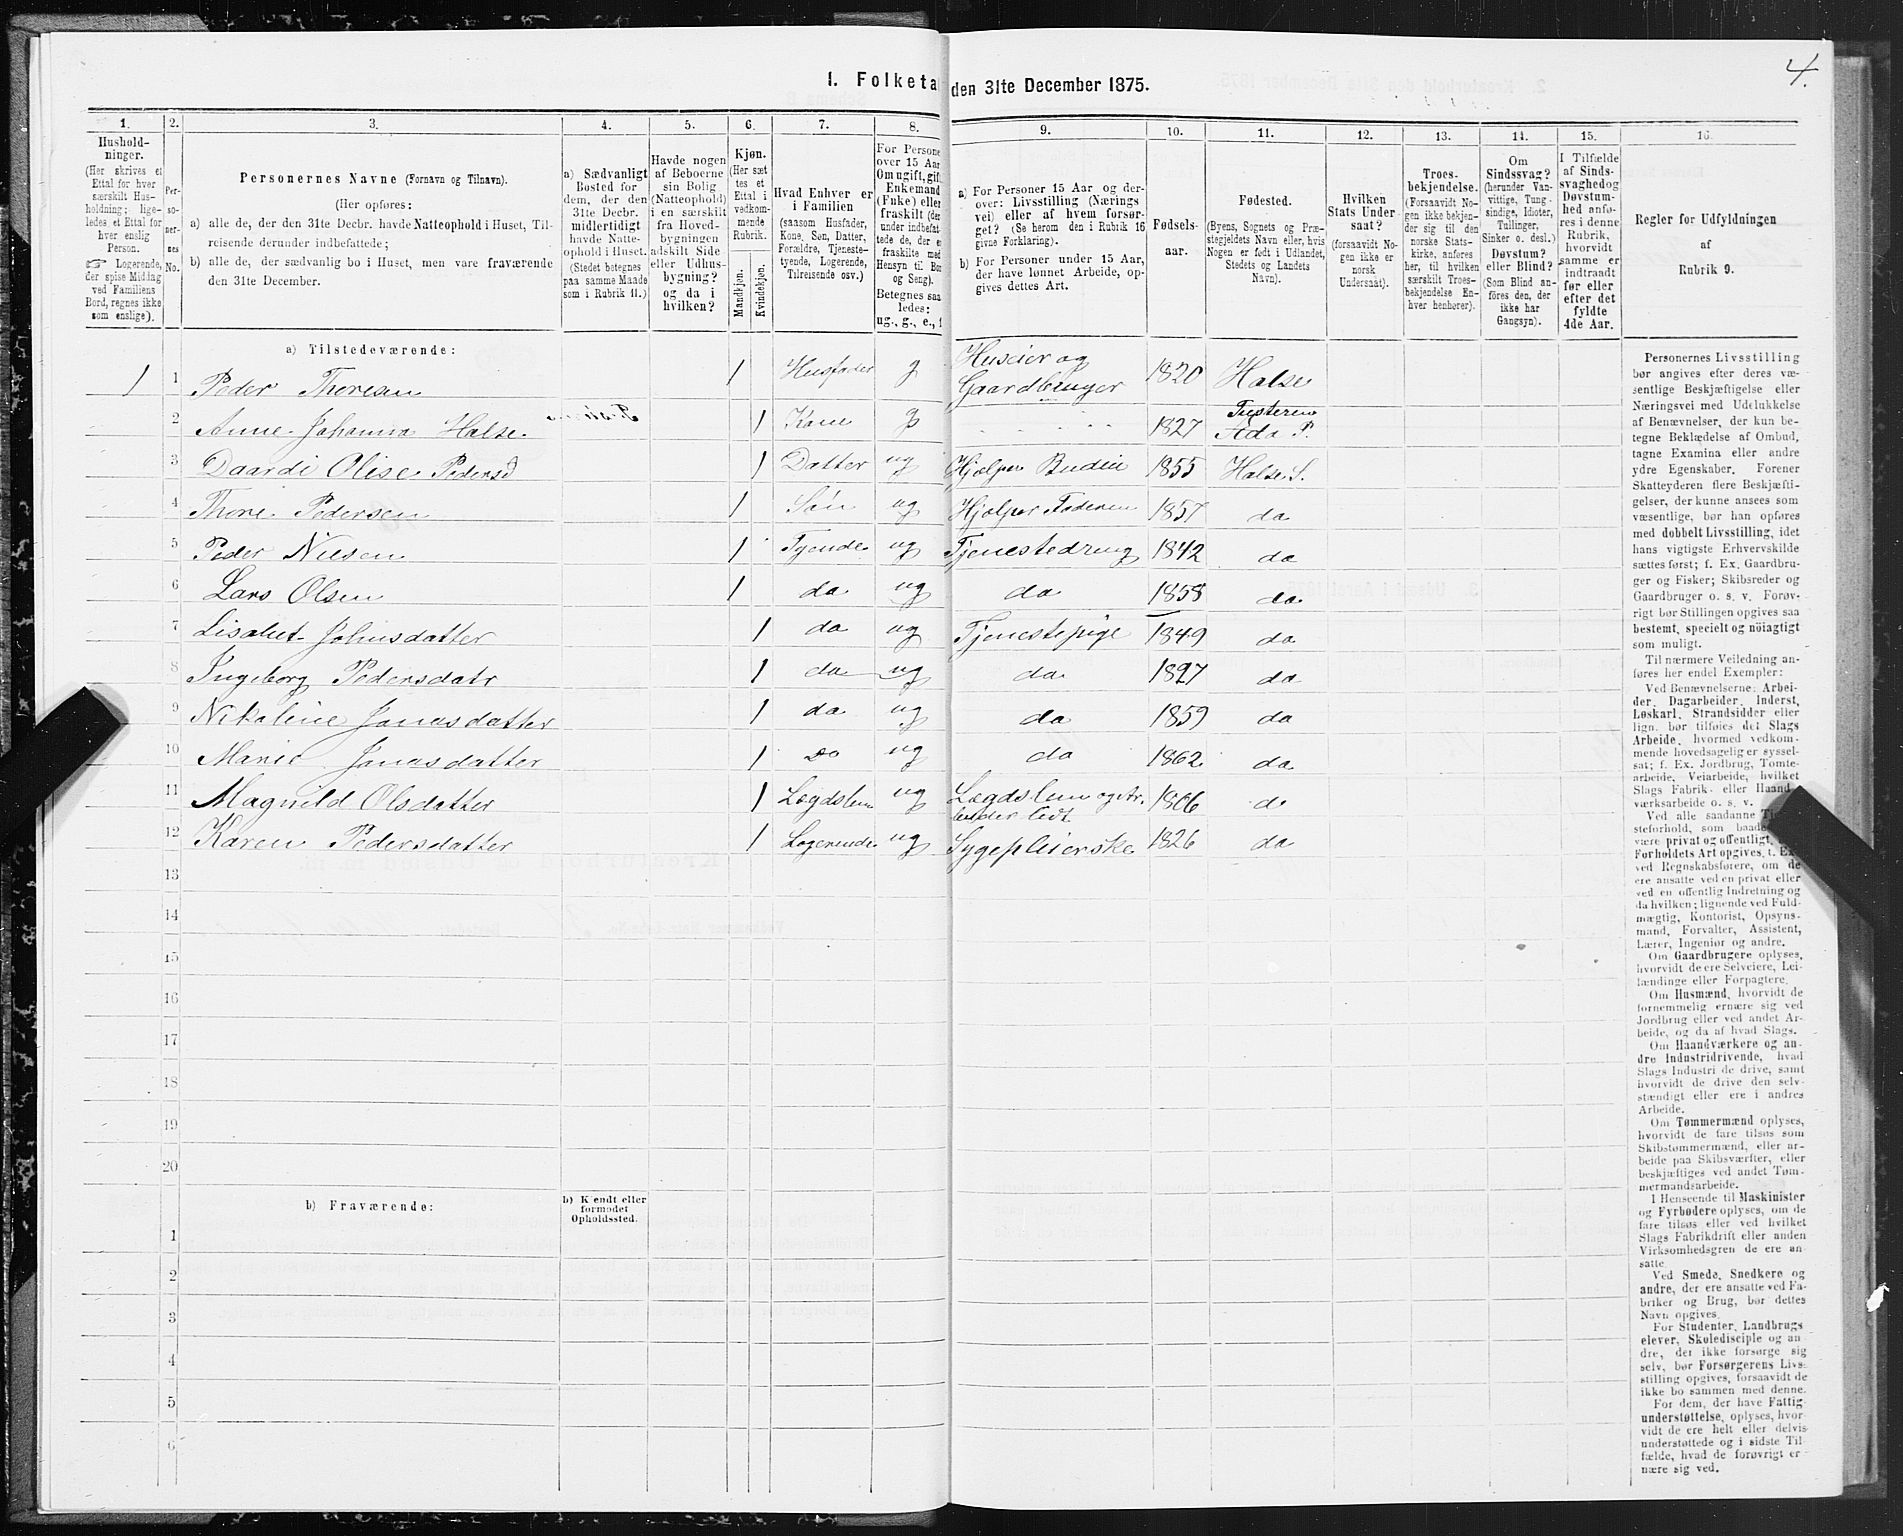 4.
1. Folketal den 31te December 1875.
1. 2. 3. 4. 5. 6. 7. 8. 9. 10. 11. 12. 13. 14. 15. 16.
Husholdninger.
(Her skrives et Ettal for hver særskilt Husholdning; ligeledes et Ettal for hver enslig Person.
☞ Logerende, der spise Middag ved Familiens Bord, regnes ikke som enslige).
Personernes No.
Personernes Navne (Fornavn og Tilnavn).
(Her opføres:
a) alle de, der den 31te Decbr. havde Natteophold i Huset, Tilreisende derunder indbefattede;
b) alle de, der sædvanlig bo i Huset, men vare fraværende den 31te December.
a) Sædvanligt Bosted for dem, der den 31te Decbr. midlertidigt havde Natteophold i Huset.
(Stedet betegnes paa samme Maade som i Rubrik 11.)
Havde nogen af Beboerne sin Bolig (Natteophold) i en særskilt fra Hovedbygningen adskilt Side eller Udhusbygning? og da i hvilken?
Kjøn.
(Her sættes et Ettal i vedkommende Rubrik.
Mandkjøn.
Kvindekjøn.
Hvad Enhver er i Familien
(saasom Husfader, Kone, Søn, Datter, Forældre, Tjenestetyende, Logerende, Tilreisende osv.)
For Persone over 15 Aar Om ugift, gif Enkemand (Enke) elle fraskilt (de under indbefattede de, der e fraskilte med Hensyn til Bo og Seng).
Betegnes saaledes: ug., g., e.,
a) For Personer 15 Aar og derover: Livsstilling (Næringsvei) eller af hvem forsørget? (Se herom den i Rubrik 16 givne Forklaring).
b) For Personer under 15 Aar, der have lønnet Arbeide, opgives dettes Art.
Fødselsaar.
Fødested.
(Byens, Sognets og Præstegjeldets Navn eller, hvis Nogen er født i Udlandet, Stedets og Landets Navn).
Hvilken Stats Undersaat?
(forsaavidt Nogen ikke er norsk Undersaat).
Troesbekjendelse.
(Forsaavidt Nogen ikke bekjender sig til den norske Statskirke, anføres her, til hvilken særskilt Troesbekjendelse Enhver henhører).
Om Sindssvag? (herunder Vanvittige, Tungsindige, Idioter, Tullinger, Sinker o. desl.) Døvstum? eller Blind?
(Som Blind anføres den, der ikke har Gangsyn).
I Tilfælde af Sindssvaghed og Døvstumhed anføres i denne Rubrik, hvorvidt samme er indtraadt før eller efter det fyldte 4de Aar.
Regler for Udfyldningen af Rubrik 9.
a) Tilstedeværende:
1 1 Peder Thoresen 1 Husfader g Huseier og Gaardbruger 1820 Halse
2 Anne Johanna Halse 1 Kone g 1827 Tusteren Ædø P.
3 Daardi Olise Pedersd 1 Datter ug Hjælper Budeie 1855 Halse S.
4 Thore Pedersen 1 Søn ug Hjælper Faderen 1857 do
5 Peder Nilsen 1 Tyende ug Tjenestedreng 1842 do
6 Lars Olsen 1 do ug do 1858 do
7 Lisabet Johnsdatter 1 do ug Tjenestepige 1849 do
8 Ingeborg Pedersdatr 1 do ug do 1827 do
9 Nikoline Jonasdatter 1 do ug do 1859 do
10 Marie Jonasdatter 1 do ug do 1862 do
11 Magnild Olsdatter 1 Lægdslem ug Lægdslem 1806 do
12 Karen Pedersdatter 1 Logerende ug Sygepleierske 1826 do
13
14
15
16
17
18
19
20
b) Fraværende:
b) Kjendt eller formodet Opholdssted.
1
2
3
4
5
6
Personernes Livsstilling
bør angives efter deres væsentlige Beskjæftigelse eller
Næringsvei med Udelukkelse
af Benævnelser, der kun betegne Beklædelse af Ombud,
tagne Examina eller andre
ydre Egenskaber. Forener
Skatteyderen flere Beskjæftigelser, der kunne ansees som
væsentlige, bør han opføres
med dobbelt Livsstilling, idet
hans vigtigste Erhvervskilde
sættes først; f. Ex. Gaardbruger og Fisker; Skibsreder og
Gaardbruger o. s. v. Forøvrigt bør Stillingen opgives saa
bestemt, specielt og nöiagtigt
som muligt.
Til nærmere Veiledning anføres her endel Exempler:
Ved Benævnelserne: Arbeider, Dagarbeider, Inderst,
Løskarl, Strandsidder eller
lign. bør tilføies det Slags
Arbeide, hvormed vedkommende hovedsagelig er sysselsat; f. Ex. Jordbrug, Tomtearbeide, Veiarbeide, hvilket
Slags Fabrik- eller Haandværksarbeide o. s. v.
Ved alle saadanne
være privat og offentlig,
Forholdets Art opgives, f. Ex.
ved Regnskabsførere, om de
ere ansatte ved en privat eller
ved en offentlig Indretning og
da hvilken; lignende ved Fuldmægtig, Kontorist, Opsynsmand, Forvalter, Assistent,
Lærer, Ingeniør og andre.
Om Gaardbrugere oplyses,
hvorvidt de ere Selveiere, Leilændinge eller Forpagtere.
Om Husmænd, hvorvidt de
fornemmelig ernære sig ved
Jordbrug eller ved andet Arbeide, og da af hvad Slags.
Om Haandværkere og andre Industridrivende, hvad
Slags Industri de drive, samt
hvorvidt de drive den selvstændigt eller ere i andres
Arbeide.
Om Tømmermænd oplyses,
hvorvidt de fare tilsøs som
Skibstømmermænd, eller arbeide paa Skibsværfter, eller
beskjæftiges ved andet Tømmermandsarbeide.
I Henseende til Maskinister
og Fyrbødere oplyses, om de
fare tilsøs eller ved hvilket
Slags Fabrikdrift eller anden
Virksomhedsgren de ere ansatte.
Ved Smede, Snedkere og
andre, der ere ansatte ved Fabriker og Brug, bør dettes
Navn opgives.
For Studenter, Landbrugselever, Skoledisciple og andre, der ikke forsørge sig
selv, bør Forsørgerens Livsstilling opgives, forsaavidt de
ikke bo sammen med denne.
For dem, der have Fattigunderstøttelse, oplyses, hvorvidt de ere helt eller delvis
understøttede og i sidste Tilfælde, hvad de forøvrigt ernære sig ved.